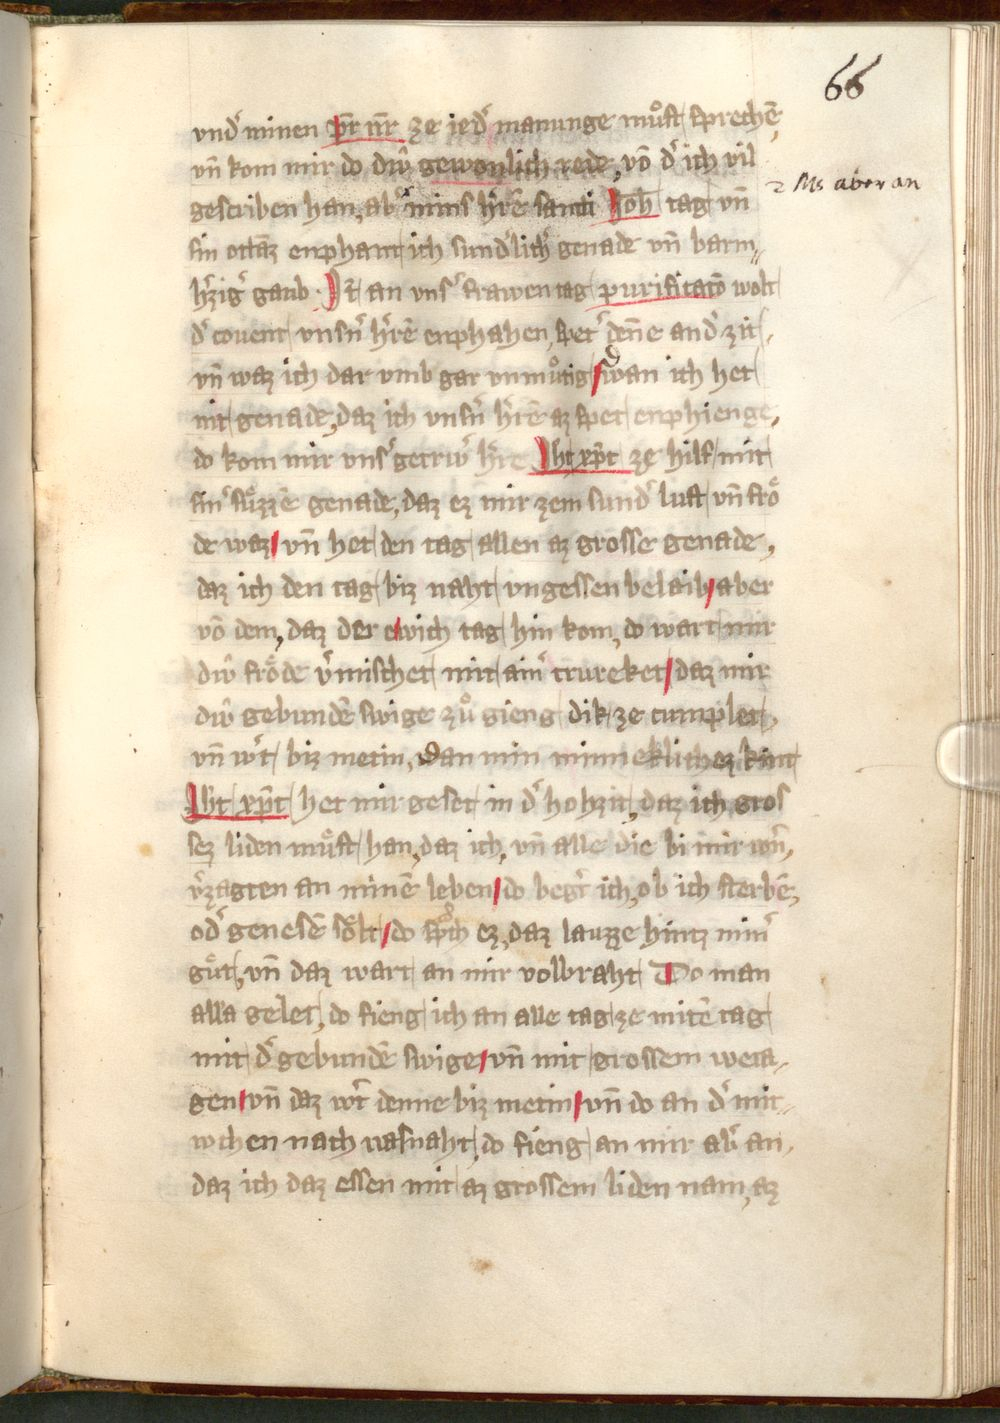 66
vnd᷎ minen pr̄ nr̄ ze ied᷎ manunge mvͦst sprechē
vn̄ kom mir do diw̑ gewonlich rede, vō d᷎ ich vil
2 Ms aber an
gescriben han, ab᷎ mins h᷎rē santi Joh̄ tag vn̄
sin ottaz enphant ich sund᷎lich᷎ genade vn̄ barm⸗
h᷎zig᷎ gaub. Jt̄ an vns᷎ frawen tag purificatō wolt
d᷎ couent vnsn᷎ h᷎rē enphahen, spet᷎ dēne and᷎ zit,
vn̄ waz ich dar vmb gar vnmvͦtig swan ich het
nit genade, daz ich vnsn᷎ h᷎rē az spet enphienge,
do kom mir vns᷎ getrw᷎ h᷎re Jht xp̄t ze hilf mit
sin᷎ sv̈zzē genade, daz ez mir zem sund᷎ lust vn̄ frö
de waz vn̄ het den tag allen az grosse genade,
daz ich den tag biz naht vngessen belaib aber
vō dem, daz der ewich tag hin kom, do wart mir
diw̑ fröde v᷎mischet mit ain᷎ trureket daz mir
diw̑ gebundē swige zvͦ gieng dik ze cumplet,
vn̄ w᷎t biz metin, dan min minneklichez kint
Jht xp̄t het mir geset in d᷎ hohzit, daz ich gros
sez liden mv̈st han, daz ich, vn̄ alle die bi mir wrn̄,
v᷎zagten an minē leben do beg᷎t ich, ob ich sterbē,
od᷎ genesē sölt do sp̊ch ez, daz lauzze hintz min᷎
gv̈t, vn̄ daz wart an mir volbraht Do man
all᷎a gelet, do fieng ich an alle tag ze mitē tag
mit d᷎ gebundē swige vn̄ mit grossem weta⸗
gen vn̄ daz w᷎t denne biz metin vn̄ do an d᷎ mit⸗
wchen nach vasnaht, do fieng an mir ab᷎ an,
daz ich daz essen mit az grossem liden nam, az